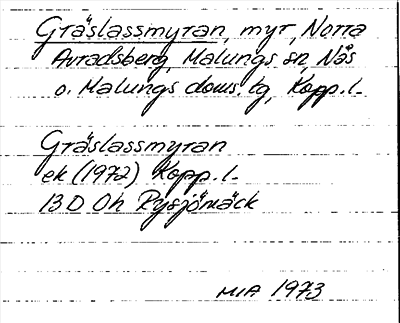 Gräslassmyran, myr, Norra
Avradsberg, Malungs sn, Nås
o. Malungs doms. tg, Kopp. l.
Gräslassmyran
ek (1972) Kopp. l.
13 D 0h Rysjömäck
MIA 1973